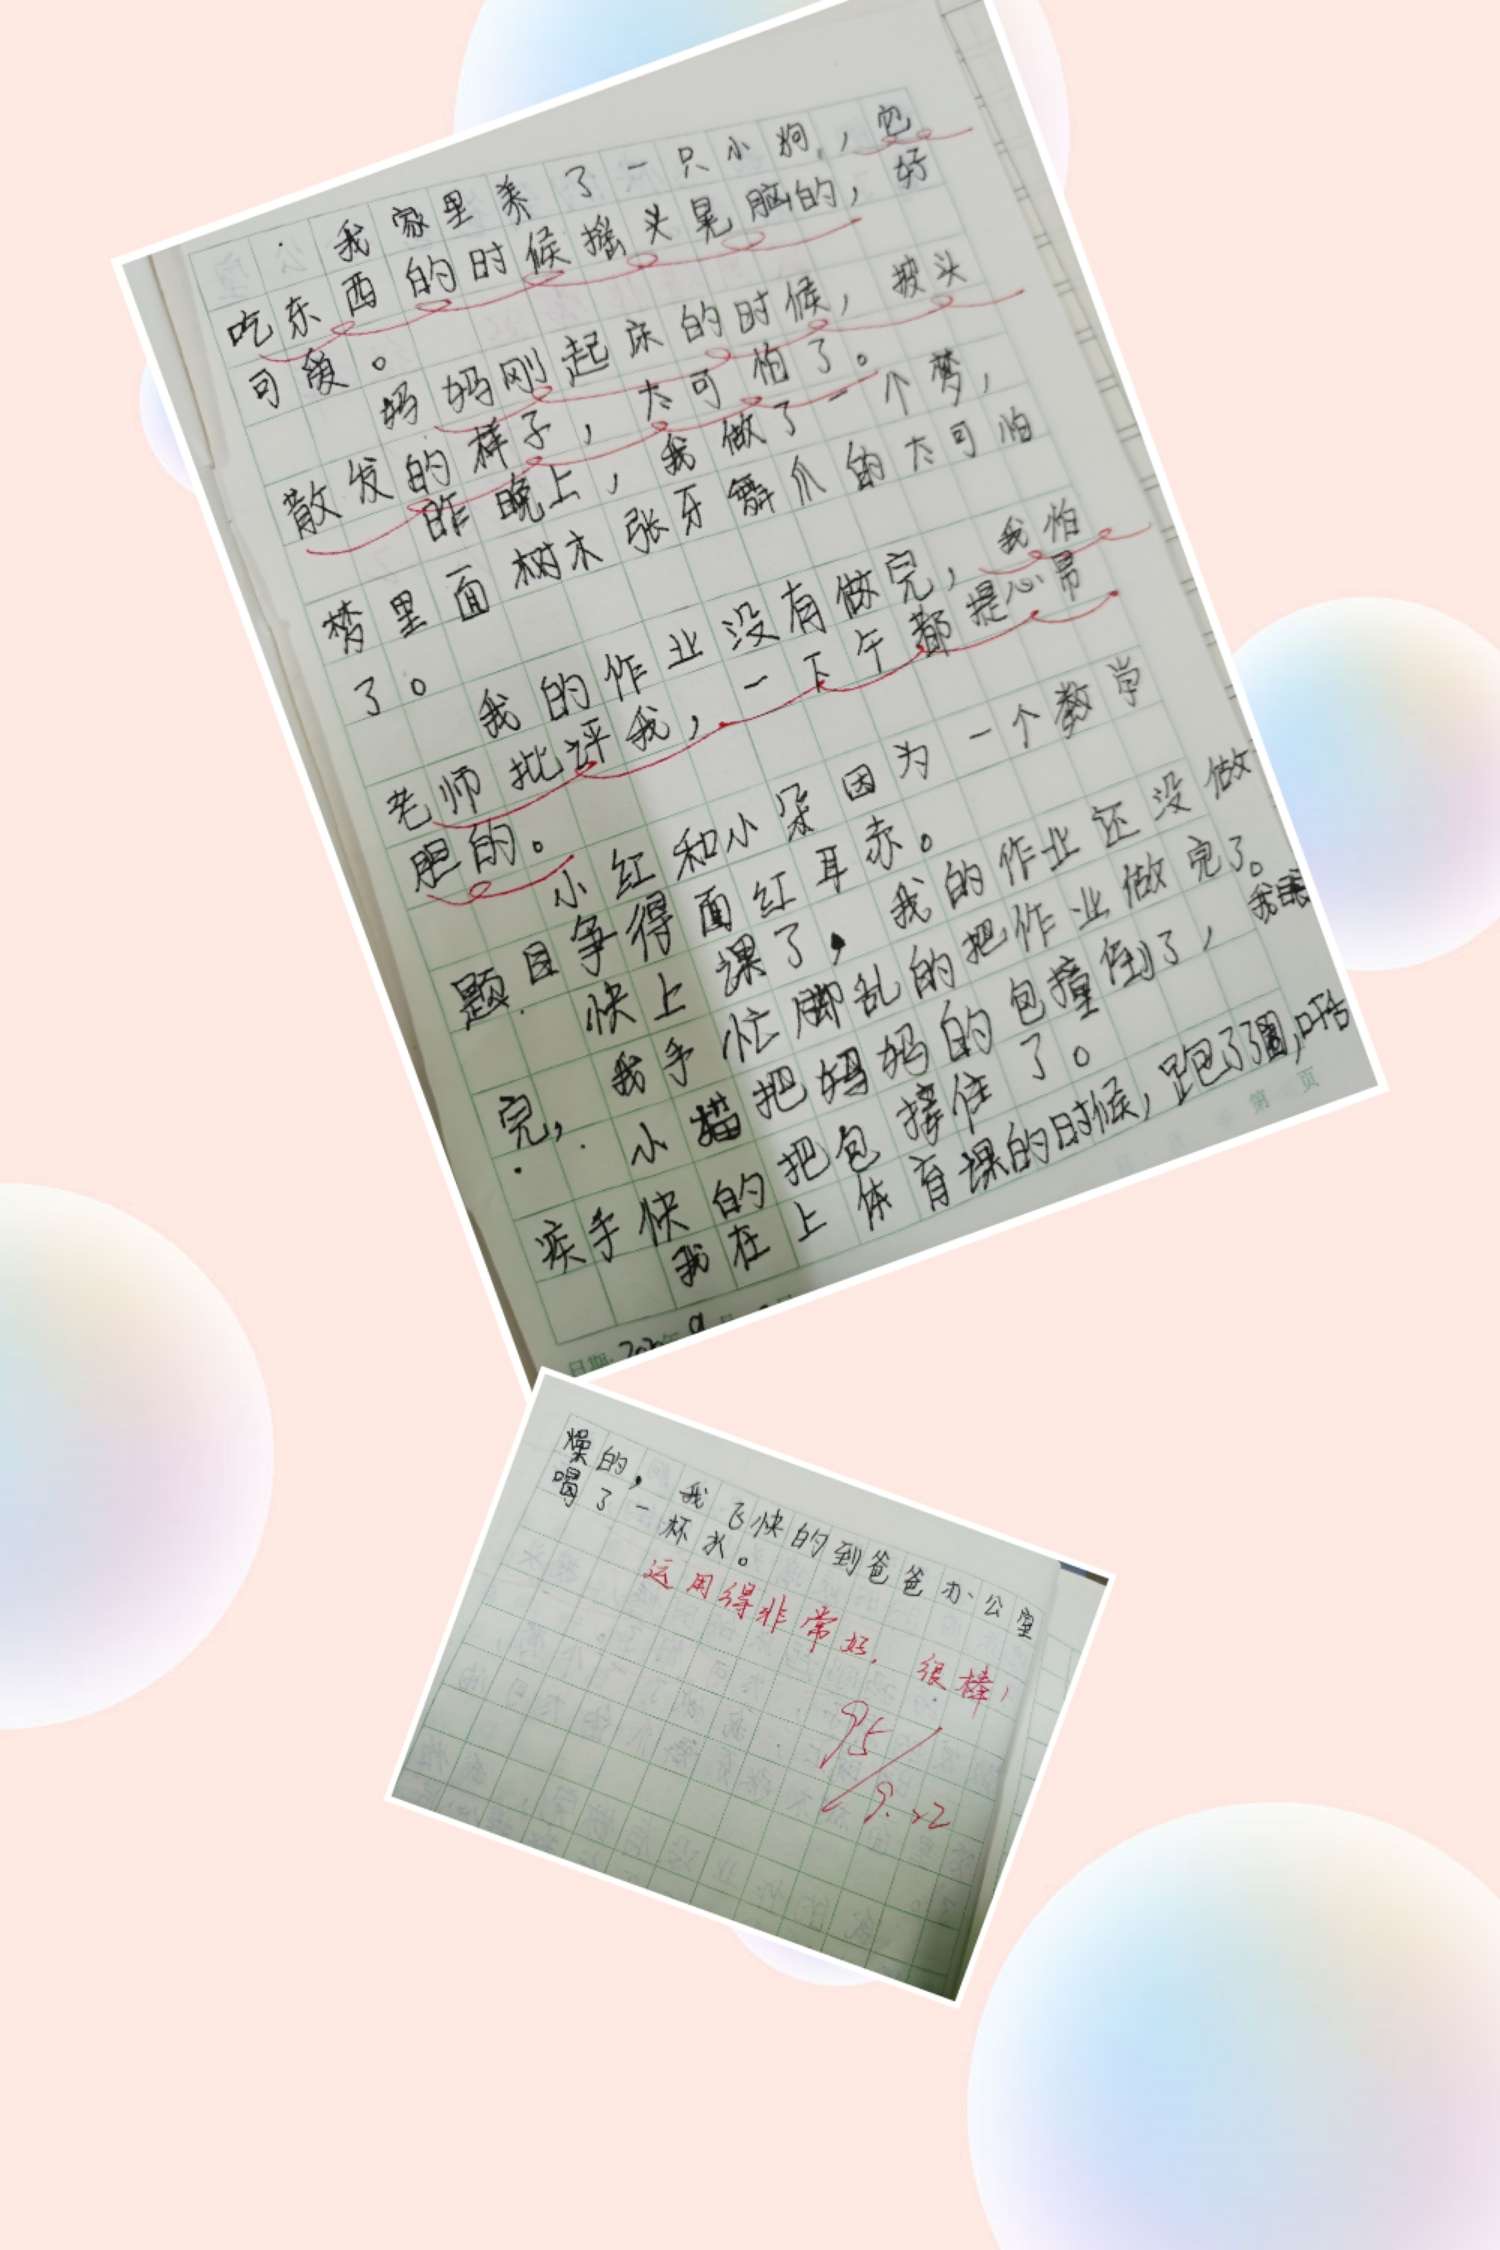 我家里养了一只小狗，它
吃东西的时候摇头晃脑的，好
可爱。
妈妈刚起床的时候，披头
散发的样子，太可怕了。
昨晚上，我做了一个梦，
梦里面树木张牙舞爪的太可怕
了。
我的作业没有做完，我怕
老师批评我，一下午都提心吊
胆的。
小红和小朵因为一个数学
题目争得面红耳赤。
快上课了，我的作业还没做
完，我手忙脚乱的把作业做完了。
小猫把妈妈的包撞倒了，我眼
疾手快的把包接住了。
我在上体育课的时候，跑了3圈，口干舌
第 页
日期：
燥的，我飞快的到爸爸办公室
喝了一杯水。
运用得非常好，很棒！
95
9.22